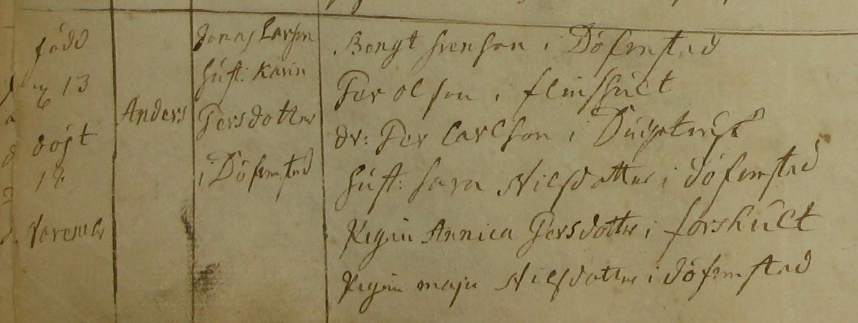 född
d 13
döpt
14
November
Anders
Jonas Larson
hust: Karin
Persdotter
i Döfvmsted
Bengt Svenson i Döfvmsted
Per olson i flinshult
dr: Per Carlson i
hust: Sara Nilsdotter i döfvmsted
Pigan Annica Persdotter i forshult
Pigan maja Nilsdotter i döfvmsted